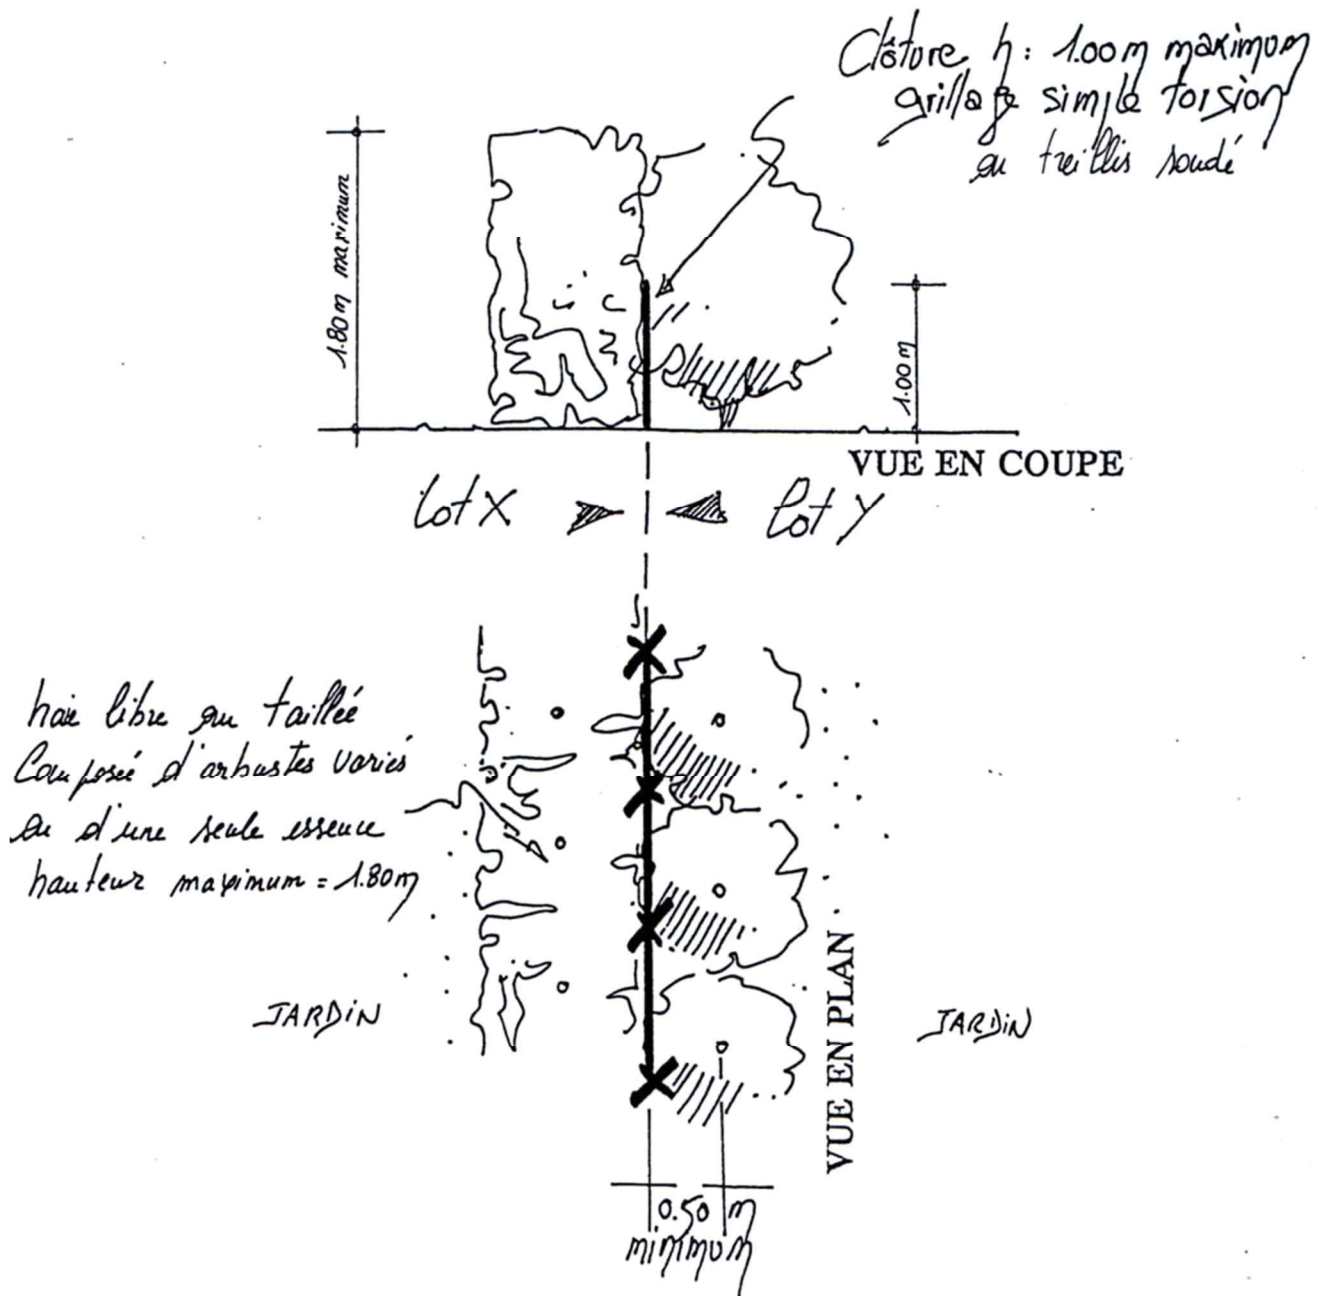 Clôture h: 1.00m maximum
grillage simple torsion
ou treillis soudé
1.80m maximum
1.00m
VUE EN COUPE
lot X
lot Y
haie libre ou taillée
Composée d'arbustes variés
ou d'une seule essence
hauteur maximum = 1.80m
JARDiN
VUE EN PLAN
JARDiN
0.50 m
minimum